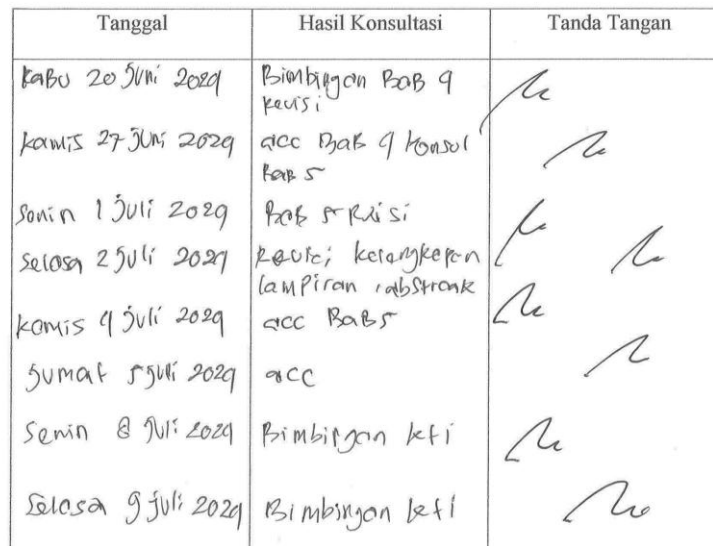 Tanggal Hasil Konsultasi Tanda Tangan
RaBu 20 Juni 2024 Bimbingan BaB 4
Revisi
Kamis 27 Juni 2024 acc BaB 4 Konsul
BaB 5
Senin 1 Juli 2024 BaB 5 Revisi
Selasa 2 Juli 2024 Revisi kelengkapan
lampiran, abstrak
Kamis 4 Juli 2024 acc BaB 5
Jumat 5 Juli 2024 acc
Senin 8 Juli 2024 Bimbingan kti
Selasa 9 Juli 2024 Bimbingan kti